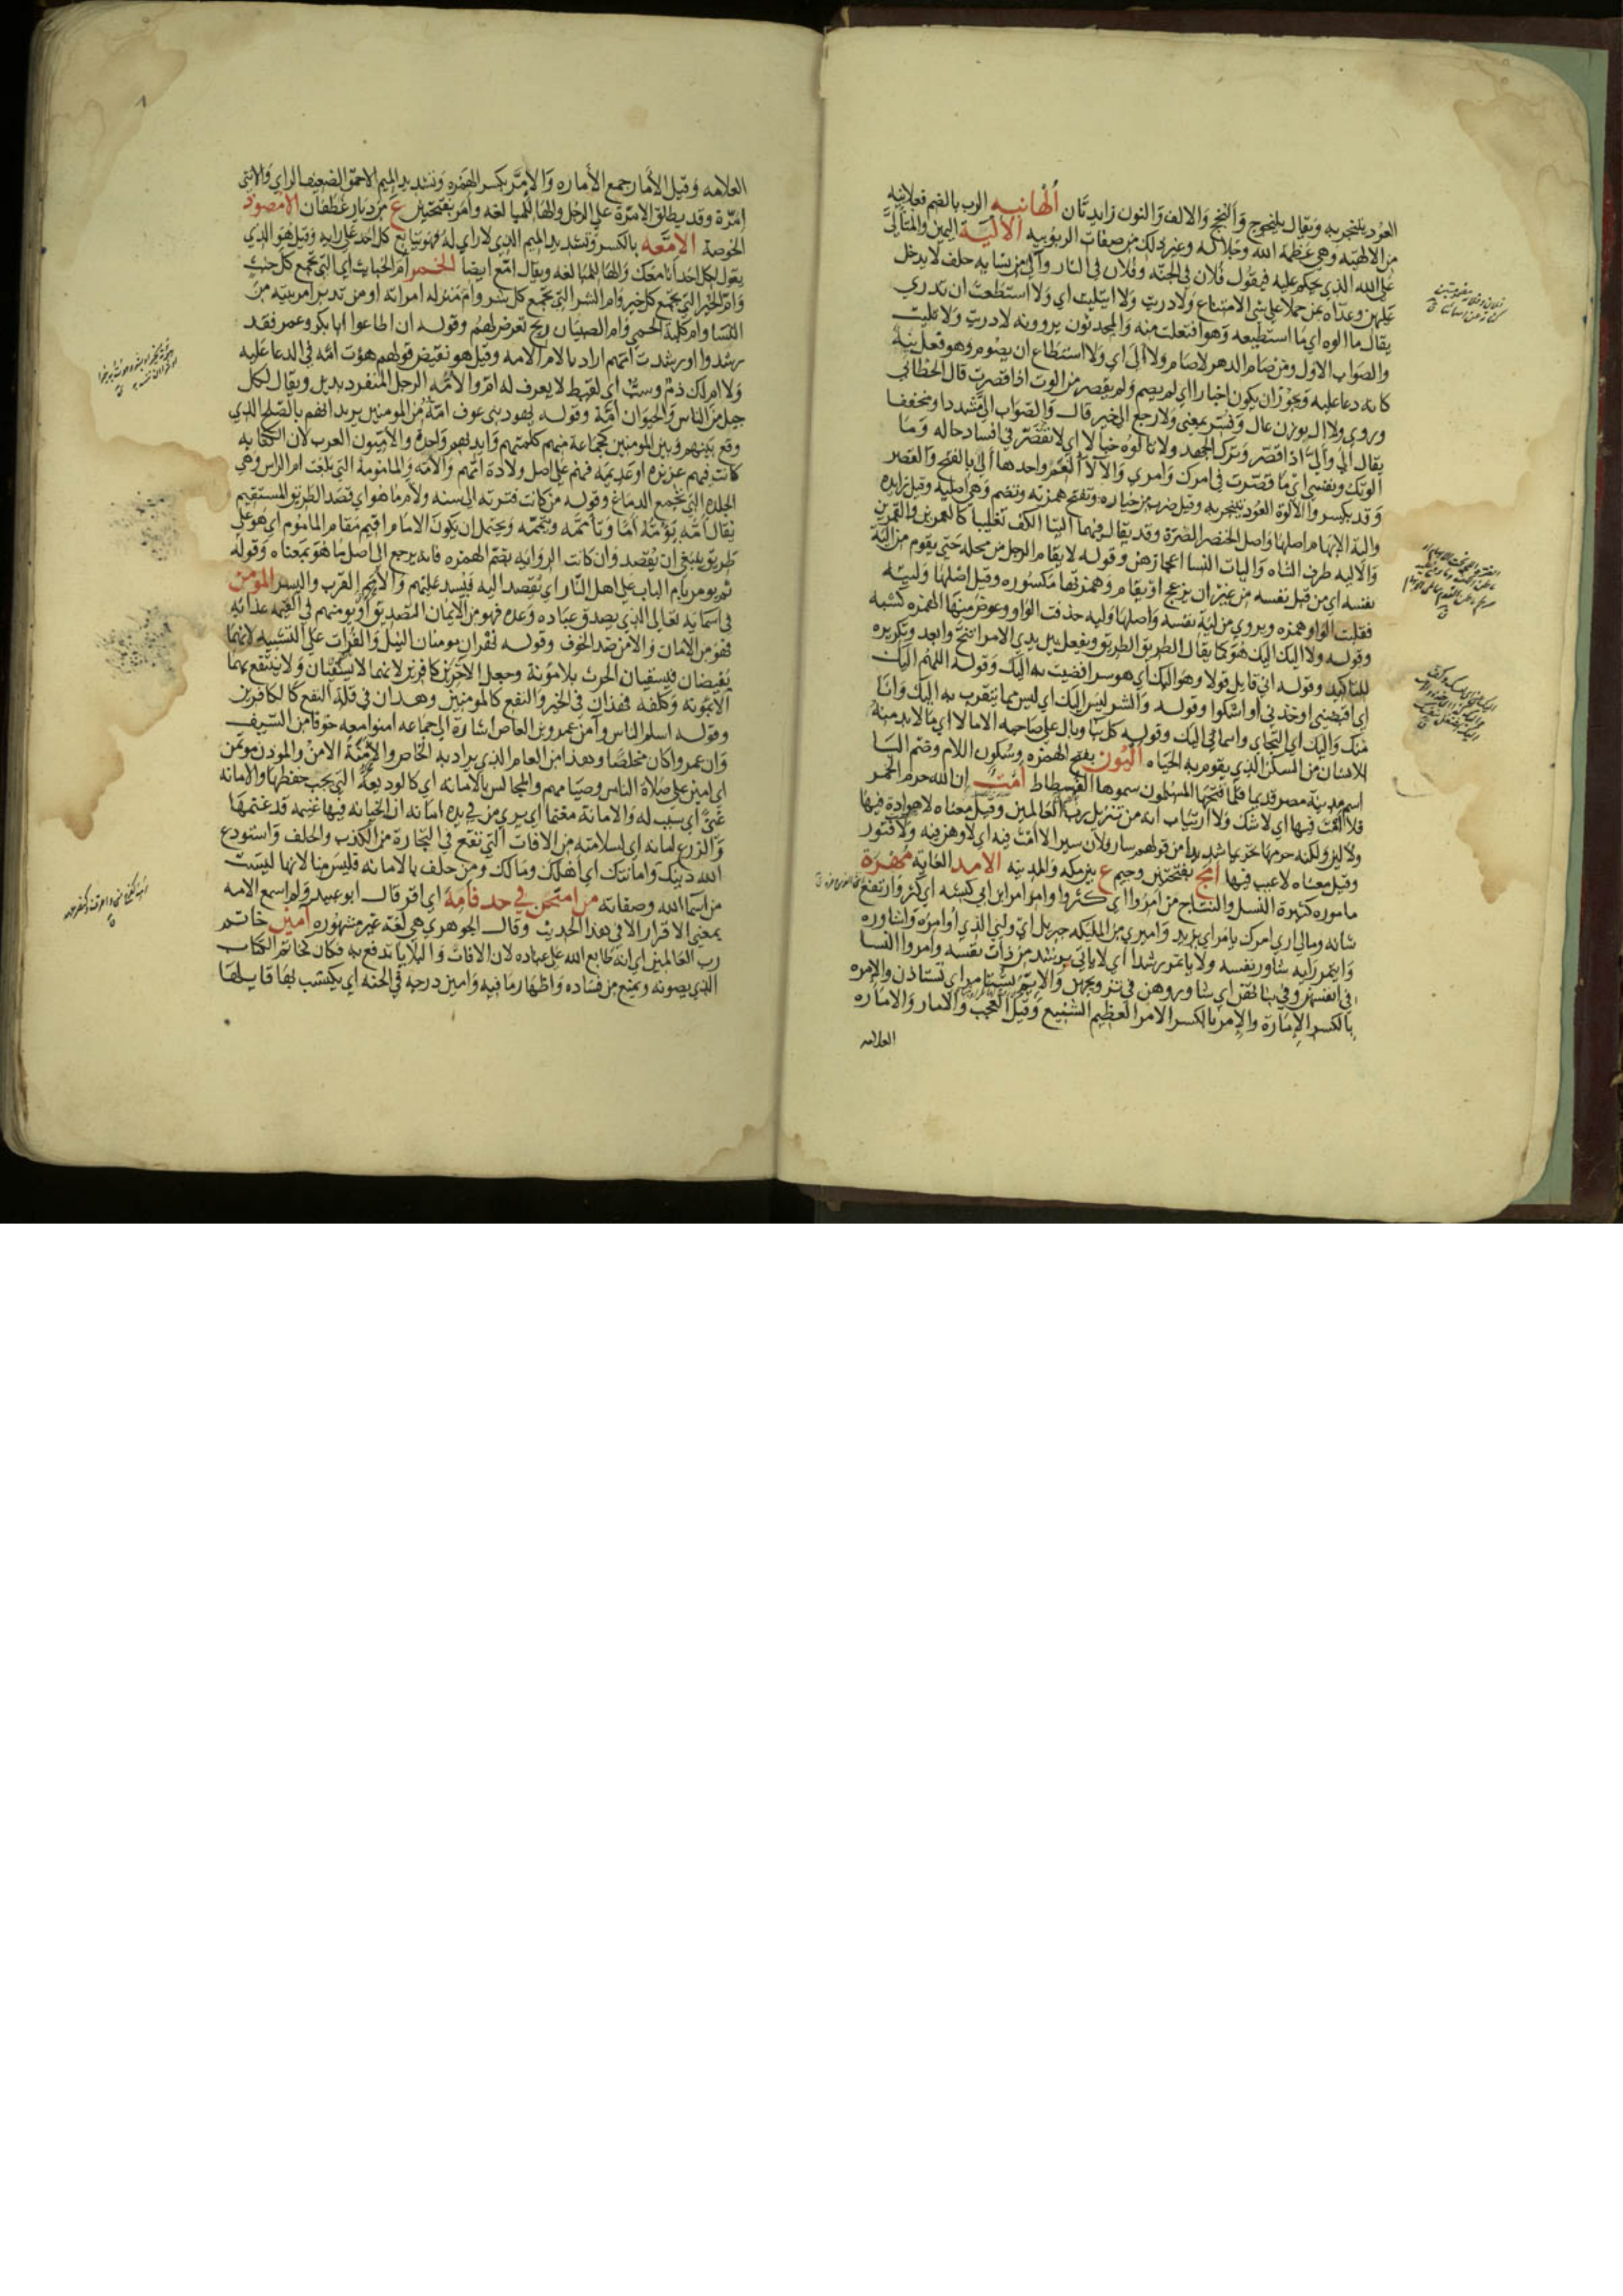 العود يتبخر به ويقال يلنجوج وألنجج والالف والنون زايدتان ألهانيه الرب بالضم فعلانيه
من الالهيه وهي عظمة الله وجلاله وغير ذلك من صفات الربوبيه الاليّة اليمين والمتألي
على الله الذي يحكم عليه فيقول فلان في الجنه وفلان في النار وآلى من نسايه حلف لا يدخل
عليهن وعداه بمن حملا على معنى الامتناع ولا دريت ولا ايتليت اي ولا استطعت ان تدري
يقال ما الوه اي ما استطيعه وهو افتعلت منه والمحدثون يروونه لا دريت ولا تليت
والصواب الاول ومن صام الدهر لا صام ولا ألى اي ولا استطاع ان يصوم وهو فعل منه
كانه دعا عليه ويجوز ان يكون اخبارا اي لم يصم ولم يقصر من الوت اذا قصرت قال الخطابي
وروي ولا ال بوزن عال وفسر بمعنى ولا رجع الى خير قال والصواب الى مشددا ومخففا
يقال ألى وألّى اذا قصر وترك الجهد ولا تالوه خبالا اي لا تقصر في افساد حاله وما
الوتك ونفسي اي ما قصرت في امرك وامري والآلاء النعم واحدها ألى بالفتح والقصر
وقد يكسر والألوة العود يتبخر به وقيل ضرب من خياره وتفتح همزته وتضم وهي اصليه وقيل زايده
والية الابهام اصلها واصل الخنصر الضرة وقد يقال فيهما اليتا الكف تغليبا كالعمرين والقمرين
والاليه طرف الشاه واليات النسا اعجازهن وقوله لا يقام الرجل من مجلسه حتى يقوم من الية
نفسه اي من قبل نفسه من غير ان يزعج او يقام وهمزتها مكسوره وقيل اصلها وليه
فقلبت الواو همزه ويروى من لية نفسه واصلها وليه حذفت الواو وعوض منها الهمزه كشبه
وقوله ولا اليك اليك هو كما يقال الطريق الطريق ويفعل بين يدي الامرا تنح وابعد وتكريره
للتاكيد وقوله اني قايل قولا وهو اليك اي هو سر افضيت به اليك وقوله اللهم اليك
اي اقبضني او خذني او اشكوا وقوله والشر ليس اليك اي ليس مما يتقرب به اليك وانا
منك واليك اي التجاي وانتماي اليك وقوله كل بنا وبال على صاحبه الا ما لا اي ما لا بد منه
للانسان من السكن الذي يقوم به الحياه أليون بفتح الهمزه وسكون اللام وضم اليا
اسم مدينة مصر قديما فلما فتحها المسلمون سموها الفسطاط أمت ان الله حرم الخمر
فلا أمت فيها اي لا شك ولا ارتياب انه من تنزيل رب العالمين وقيل معناه لا هوادة فيها
ولا لين ولكنه حرمها تحريما شديدا من قولهم سار فلان سيرا لا امت فيه اي لا وهن فيه ولا فتور
وقيل معناه لا عيب فيها أمج بفتحتين وجيم ع بين مكه والمدينه الامد الغايه مهرة
مامورة كثيرة النسل والنتاج من امروا اي كثروا وامر امر ابن ابي كبشه اي كثر وارتفع
شانه ومالي ارى امرك يامر اي يزيد واميري من المليكه جبريل اي وليي الذي اوامره واشاوره
وايتمر رايه شاور نفسه ولا ياتمر رشدا اي لا ياتي برشد من ذات نفسه وامروا النسا
في انفسهن وفي بناتهن اي شاوروهن في تزويجهن والايم تستامر اي تستاذن والامره
بالكسر الإمارة والإمر بالكسر الامر العظيم الشنيع وقيل العجب والامار والاماره
العلامه
العلامه وقيل الأمار جمع الأماره والإمّر بكسر الهمزه وتشديد الميم الاحمق الضعيف الراي والانثى
امّرة وقد يطلق الامّرة على الرجل والها للمبالغه وأمر بفتحتين ع من ديار غطفان الأمصود
الخوصة الإمّعه بالكسر وتشديد الميم الذي لا راي له فهو يتابع كل احد على رايه وقيل هو الذي
يقول لكل احد انا معك والها للمبالغه ويقال امّع ايضا الخمر أم الخبائث اي التي تجمع كل خبث
وأم الخير التي تجمع كل خير وام الشر التي تجمع كل شر وام منزله امراته او من تدبر امر بيته من
النسا وام ملدم كنية الحمى وام الصبيان ريح تعرض لهم وقوله ان اطاعوا ابا بكر وعمر فقد
رشدوا ورشدت امهم اراد بالام الامه وقيل هو نقيض قولهم هوت امه في الدعا عليه
ولا ام لك ذم وسب اي لقيط لا يعرف له ام والأمه الرجل المنفرد بدين ويقال لكل
جيل من الناس والحيوان أمة وقوله يهود بني عوف امة من المومنين يريد انهم بالصلح الذي
وقع بينهم وبين المومنين كجماعة منهم كلمتهم وايديهم واحدة والأميون العرب لان الكتابه
كانت فيهم عزيزه او عديمه فهم على اصل ولادة امهم والآمّه والمامومة التي بلغت ام الراس وهي
الجلدة التي تجمع الدماغ وقوله من كانت فترته الى سنه ولأم ما هو اي قصد الطريق المستقيم
يقال أمّه يؤمّه أمّا وتأممه وتيممه ويحتمل ان يكون الأم اقيم مقام المأموم اي هو على
طريق ينبغي ان يقصد وان كانت الروايه بضم الهمزه فانه يرجع الى اصل ما هو بمعناه وقوله
ثم يومر بأم الباب على اهل النار اي يقصد اليه فيسد عليهم والأمم القرب واليسر المومن
في اسمايه تعالى الذي يصدق عباده وعده فهو من الايمان التصديق أو يومنهم في القيمه عذابه
فهو من الامان والامن ضد الخوف وقوله نهران مومنان النيل والفرات على التشبيه لانهما
يفيضان فيسقيان الحرث بلا مؤنة وجعل الاخرين كافرين لانهما لا يسقيان ولا ينتفع بهما
الا بمؤنه وكلفه فهذان في الخير والنفع كالمومنين وهذان في قلة النفع كالكافرين
وقوله اسلم الناس وآمن عمرو بن العاص اشارة الى جماعه امنوا معه خوفا من السيف
وان عمروا كان مخلصا وهذا من العام الذي يراد به الخاص والأمنة الامن والموذن موتمن
اي امين على صلاة الناس وصيامهم والمجالس بالامانه اي كالوديعة التي يجب حفظها والامانه
غنى اي سبب له والامانة مغنما اي يرى من في يده امانه ان الخيانه فيها غنيمه قد غنمها
والزرع امانه اي لسلامته من الافات التي تقع في التجارة من الكذب والحلف واستودع
الله دينك وامانتك اي أهلك ومالك ومن حلف بالامانه فليس منا لانها ليست
من اسما الله وصفاته من امتحن في حد فأمه اي اقر قال ابو عبيد ولم اسمع الامه
بمعنى الاقرار الا في هذا الحديث وقال الجوهري هي لغة غير مشهوره آمين خاتم
رب العالمين اي انه طابع الله على عباده لان الافات والبلايا تدفع به فكان كخاتم الكتاب
الذي يصونه ويمنع من فساده واظهار ما فيه وامين درجه في الجنه اي يكتسب بها قايلها